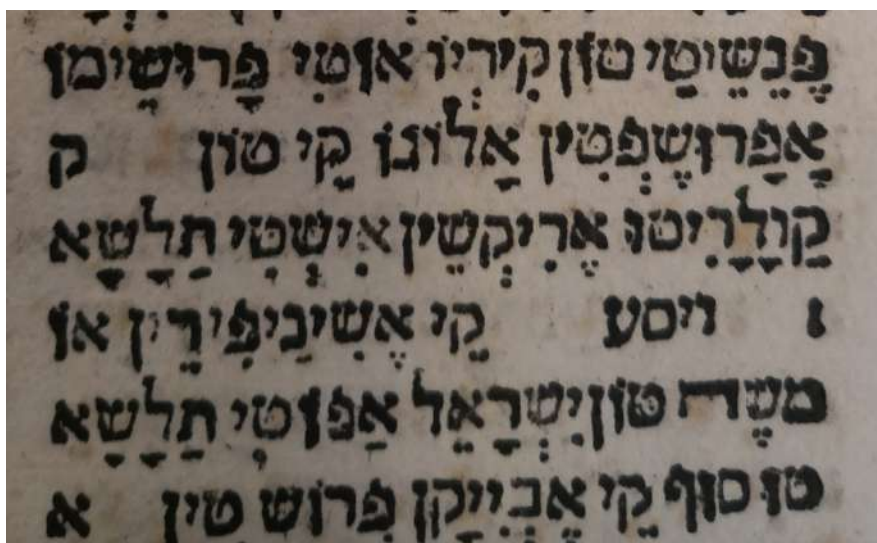 פֶנֵשֵיטֵי טוֹן קִירְיוֹ אוֹטִי פָרוּשֵימוֹ
אָפַרוּשֶפְטִין אַלוֹגוֹ קֵי טוֹן ק
קַוָלָרִיטוּ אֶרִיקְשֵין אִישְטִי תַלָשָא
ו ויסע קֵי אֶשִיבֵיפִירֵין אוֹ
משֶה טוֹן יִשְרָאֵל אַפוֹטִי תַלָשָא
טוּ סוּף קֵי אֶבְיֵיקָן פְרוֹש טִין א